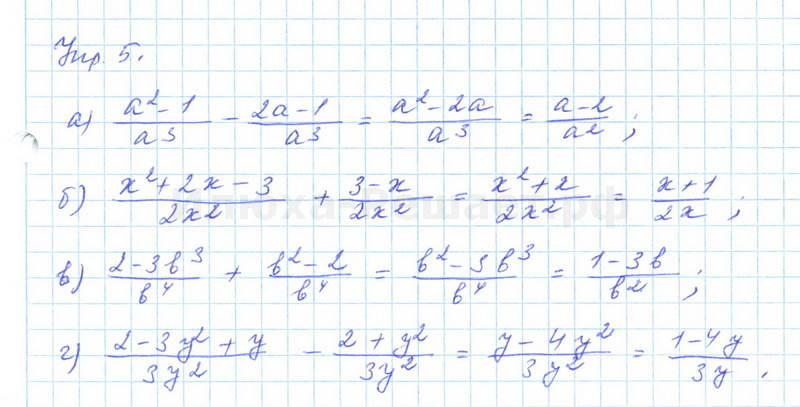 Упр. 5.
а) (a²-1)/a³ - (2a-1)/a³ = (a²-2a)/a³ = (a-2)/a²;
б) (x²+2x-3)/2x² + (3-x)/2x² = (x²+x)/2x² = (x+1)/2x;
в) (2-3b³)/b⁴ + (b²-2)/b⁴ = (b²-3b³)/b⁴ = (1-3b)/b²;
г) (2-3y²+y)/3y² - (2+y²)/3y² = (y-4y²)/3y² = (1-4y)/3y.